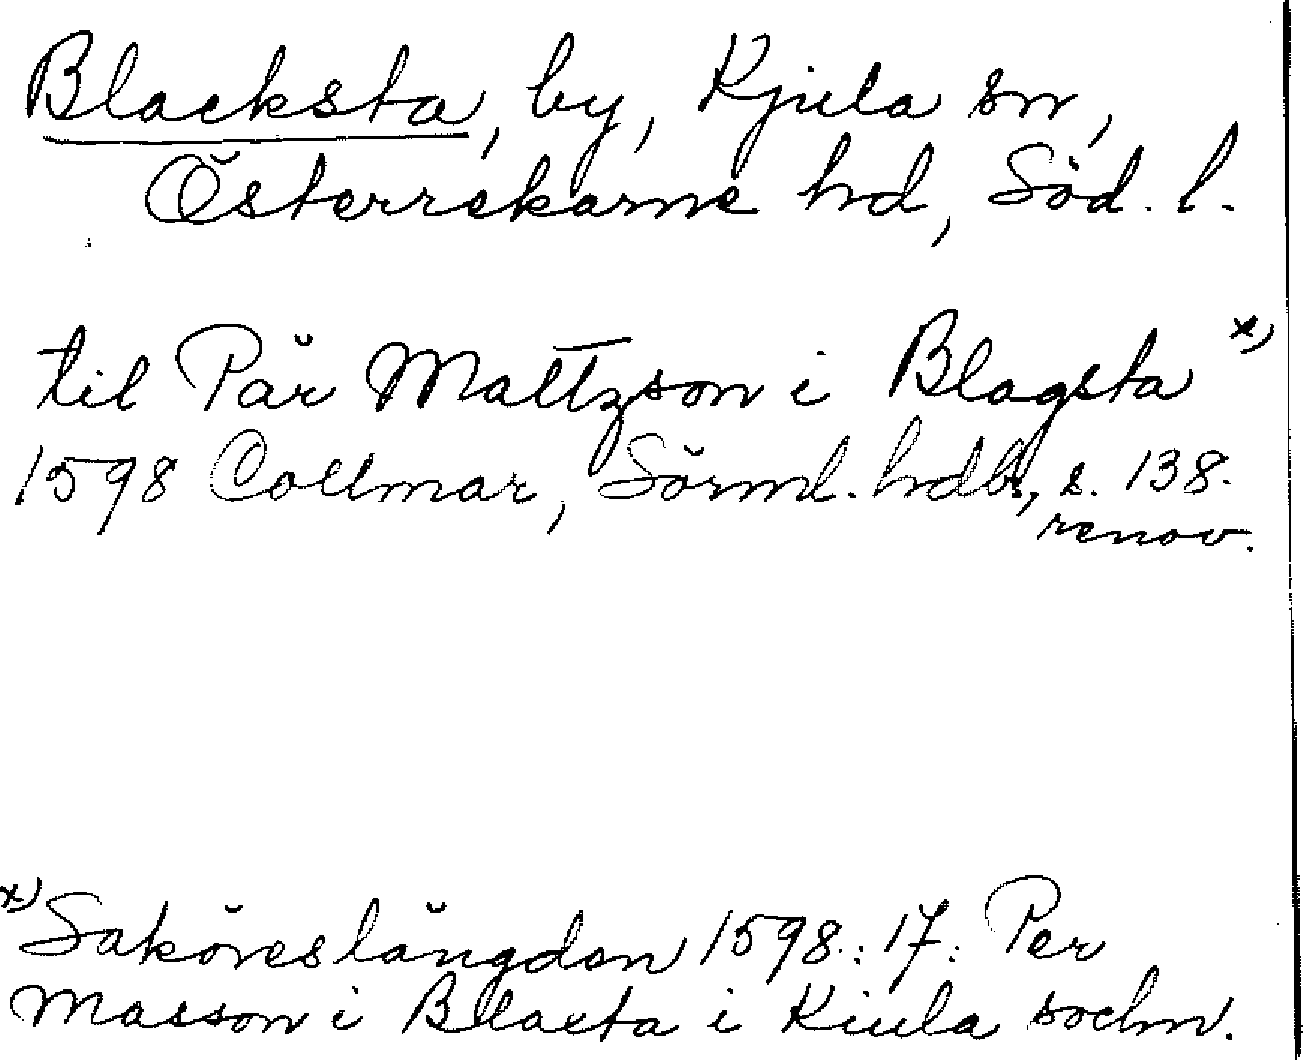 Blacksta, by, Kjula sn,
Österrekarne hd, Söd. l.
til Pär Maltzson i Blagsta x)
1598 Collmar, Sörml. hdlr, s. 138.
renov.
x) Saköreslängden 1598: 17: Per
Masson i Blacta i Kiula sochn.